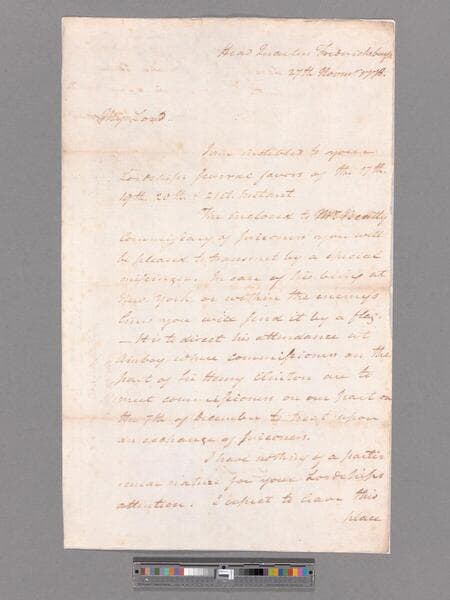 Head Quarters Fredericksburg
27th Novemr 1778.
My Lord.
I am indebted to your
Lordships several favors of the 17th.
19th 20th & 21st. Instant.
The inclosed to Mr. Beatty
Commissary of prisoners you will
be pleased to transmit by a special
messenger. In case of his being at
New York or within the enemys
lines you will send it by a flag.
— It is to direct his attendance at
Amboy where commissioners on the
part of Sir Henry Clinton are to
meet commissioners on our part on
the 7th of December to treat upon
an exchange of prisoners.
I have nothing of a partic
ular nature for your Lordships
attention. I expect to leave this
place